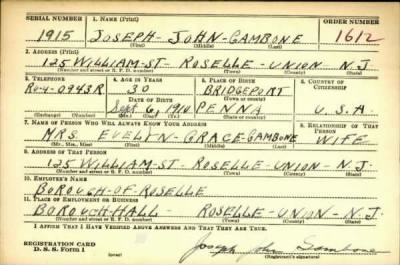 SERIAL NUMBER 1. NAME (Print) ORDER NUMBER
1915 JOSEPH - JOHN - GAMBONE 1612
(First) (Middle) (Last)
2. ADDRESS (Print)
125 WILLIAM-ST- ROSELLE-UNION N.J.
(Number and street or R. F. D. number) (Town) (County) (State)
3. TELEPHONE 4. AGE IN YEARS 5. PLACE OF BIRTH 6. COUNTRY OF CITIZENSHIP
Ro4-0943R 30 BRIDGEPORT
DATE OF BIRTH (Town or county)
Sept. 6, 1910 PENNA U.S.A.
(Exchange) (Number) (Mo.) (Day) (Yr.) (State or country)
7. NAME OF PERSON WHO WILL ALWAYS KNOW YOUR ADDRESS 8. RELATIONSHIP OF THAT PERSON
MRS EVELYN-GRACE-GAMBONE WIFE
(Mr., Mrs., Miss) (First) (Middle) (Last)
9. ADDRESS OF THAT PERSON
125 WILLIAM-ST- ROSELLE-UNION-N.J.
(Number and street or R. F. D. number) (Town) (County) (State)
10. EMPLOYER'S NAME
BOROUGH-OF-ROSELLE
11. PLACE OF EMPLOYMENT OR BUSINESS
BOROUGH-HALL- ROSELLE-UNION-N.J.
(Number and street or R. F. D. number) (Town) (County) (State)
I AFFIRM THAT I HAVE VERIFIED ABOVE ANSWERS AND THAT THEY ARE TRUE.
REGISTRATION CARD
D. S. S. Form 1
Joseph John Gambone
(Registrant's signature)